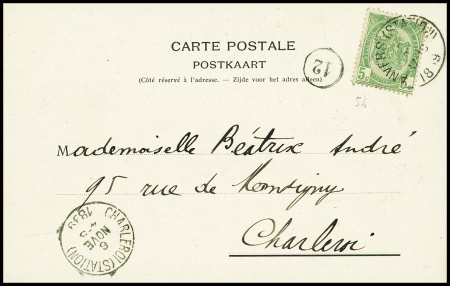 CARTE POSTALE
POSTKAART
(Côté réservé à l'adresse. - Zijde voor het adres alleen)
12
ANVERS (STATION)
5
56
Mademoiselle Béatrix André
95 rue de Montigny
Charleroi
CHARLEROI (STATION)
6
NOVE
1899